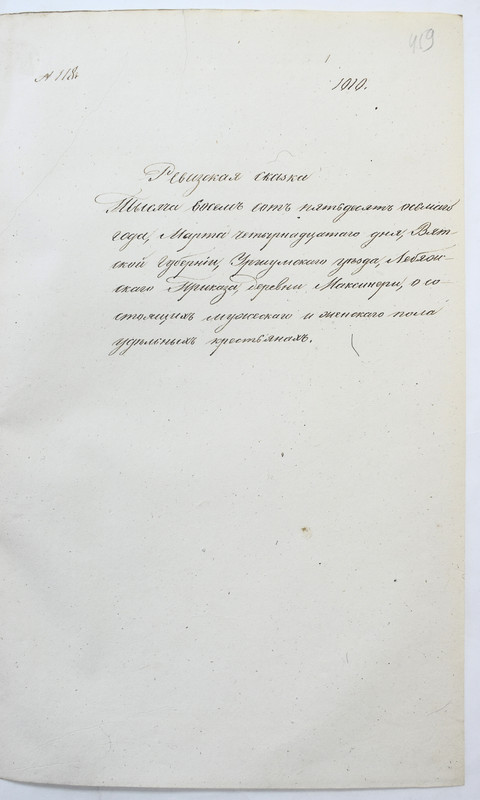 419
№ 118.
1010.
Ревизская сказка
Тысяча восемь сотъ пятьдесятъ осьмаго
года, Марта четырнадцатаго дня, Вят-
ской губерніи, Уржумскаго уѣзда, Лебяж-
скаго Приказа, деревни Максинери, о со-
стоящихъ мужескаго и женскаго пола
удѣльныхъ крестьянахъ.